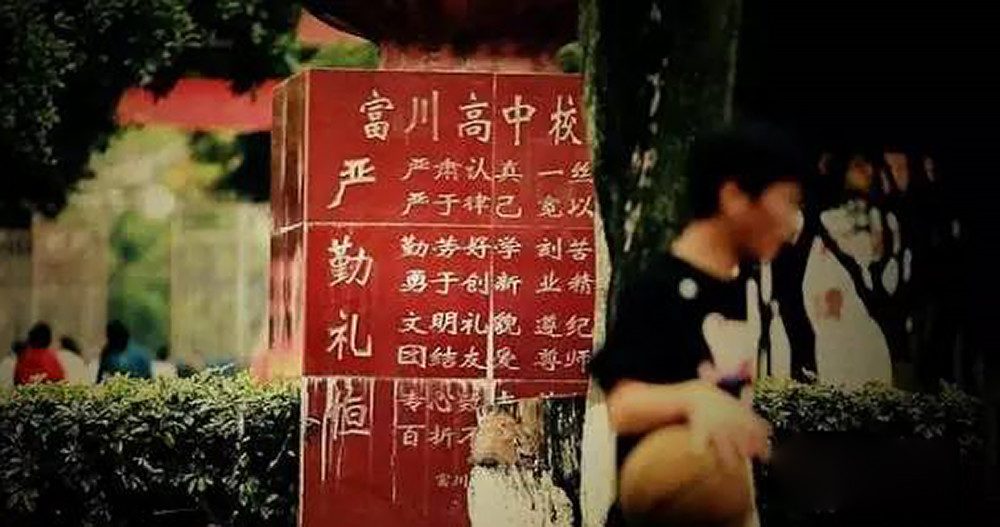 富川高中校
严 严肃认真 一丝
严于律己 宽以
勤 勤劳好学 刻苦
勇于创新 业精
礼 文明礼貌 遵纪
团结友爱 尊师
恒 专心致
百折不
富川